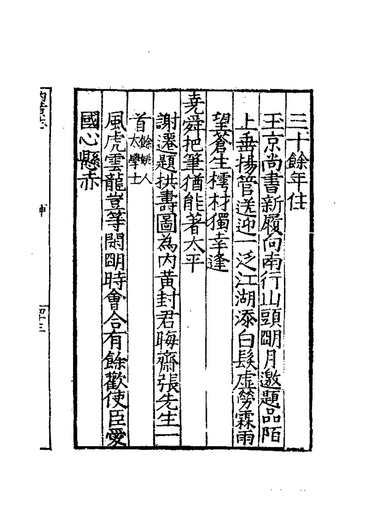 三十餘年住
玉京尚書新履向南行山頭明月邀題品陌
上垂揚管送迎一泛江湖添白髮虛勞霖雨
望蒼生樗材獨幸逢
堯舜把筆猶能著太平
謝遷題拱壽圖為内黄封君晦齋張先生一
首餘姚人太學士
風虎雲龍豈等閑明時會合有餘歡使臣愛
國心懸赤